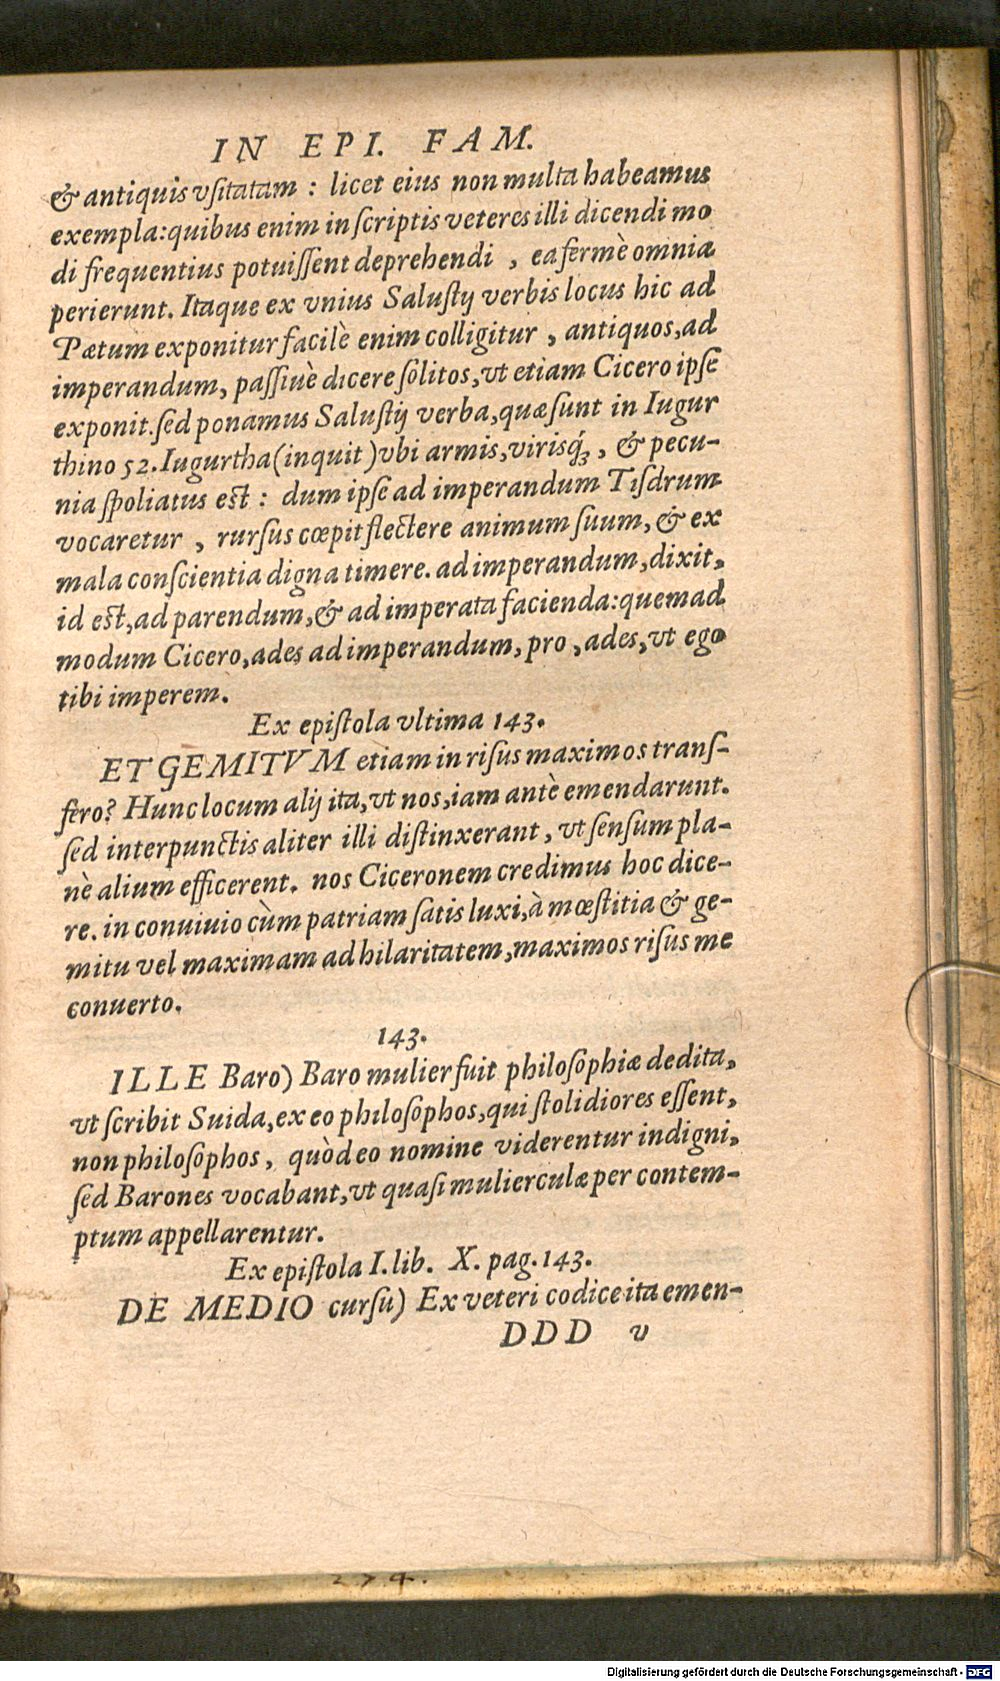 IN EPI. FAM.
& antiquis vsitatam : licet eius non multa habeamus
exempla: quibus enim in scriptis veteres illi dicendi mo
di frequentius potuissent deprehendi , ea fermè omnia
perierunt. Itaque ex vnius Salustij verbis locus hic ad
Pætum exponitur facilè enim colligitur , antiquos, ad
imperandum, passiuè dicere solitos, vt etiam Cicero ipse
exponit. sed ponamus Salustij verba, quæ sunt in Iugur
thino 52. Iugurtha (inquit) vbi armis, virisq́₃, & pecu-
nia spoliatus est : dum ipse ad imperandum Tisdrum
vocaretur , rursus cœpit flectere animum suum, & ex
mala conscientia digna timere. ad imperandum, dixit,
id est, ad parendum, & ad imperata facienda: quemad
modum Cicero, ades ad imperandum, pro , ades, vt ego
tibi imperem.
Ex epistola vltima 143.
ET GEMITVM etiam in risus maximos trans-
fero? Hunc locum alij ita, vt nos, iam antè emendarunt.
sed interpunctis aliter illi distinxerant, vt sensum pla-
nè alium efficerent. nos Ciceronem credimus hoc dice-
re. in conuiuio cùm patriam satis luxi, à mœstitia & ge-
mitu vel maximam ad hilaritatem, maximos risus me
conuerto.
143.
ILLE Baro) Baro mulier fuit philosophiæ dedita,
vt scribit Suida, ex eo philosophos, qui stolidiores essent,
non philosophos, quòd eo nomine viderentur indigni,
sed Barones vocabant, vt quasi mulierculæ per contem-
ptum appellarentur.
Ex epistola I. lib. X. pag. 143.
DE MEDIO cursu) Ex veteri codice ita emen-
DDD v
274.
Digitalisierung gefördert durch die Deutsche Forschungsgemeinschaft - DFG